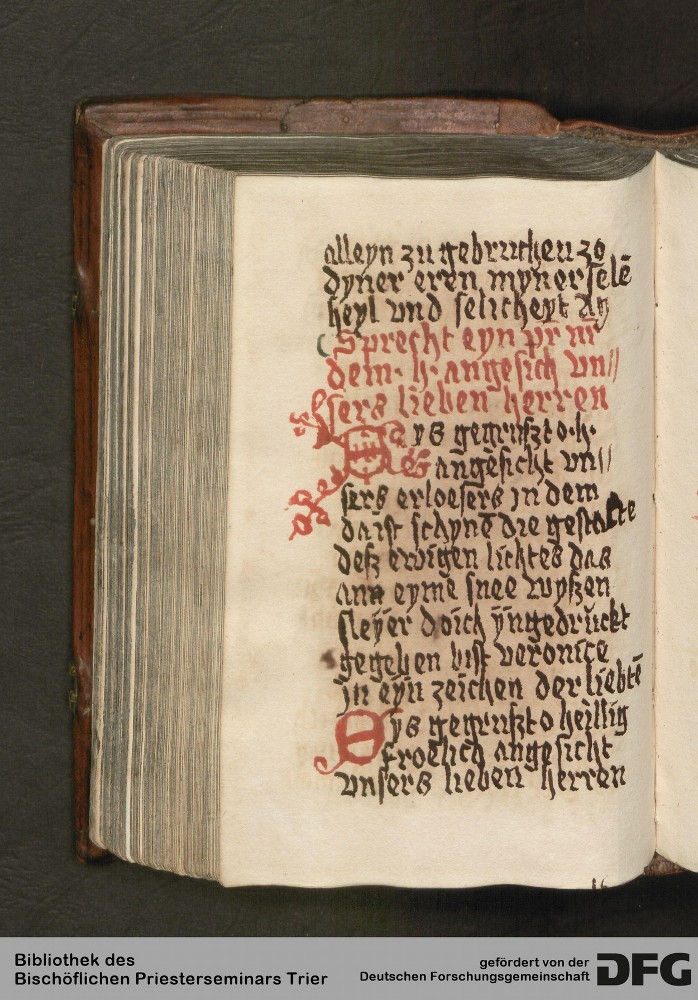 alleyn zu gebruchen zo
dyner eren myner selē
heyl vnd selicheyt
Sprecht eyn pr̄ nr̄
dem · h · angesich vn//
sers lieben herren
Bys gegruszt o · h ·
angesicht vn//
sers erloesers jn dem
da ist schynē die gestalte
desz ewigen lichtes das
ann eymē snee wyszen
sleÿer doich ÿngedruckt
gegeben bist veronice
jn eyn zeichen der liebtē
Bys gegruszt o heillig
froelich angesicht
vnsers lieben herren
Bibliothek des
Bischöflichen Priesterseminars Trier
gefördert von der
Deutschen Forschungsgemeinschaft
DFG